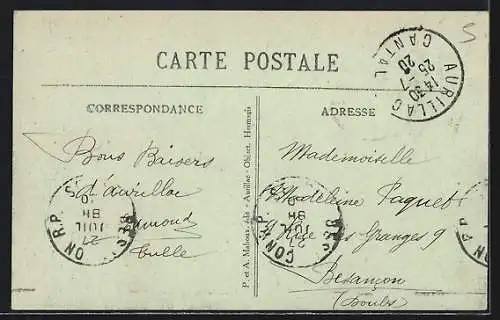 5
CARTE POSTALE
AURILLAC
CANTAL
14 30
25 -7
20
CORRESPONDANCE
ADRESSE
Bons Baisers
d'aurillac
Tulle
P. et A. Malroux, édit. - Aurillac - Object. Hermagis
Mademoiselle
Madeleine Paquet
Rue des Granges 9
Besançon
(Doubs)
8H
27
JUIL
ON R.P.
8H
27
JUIL
CON R.P.